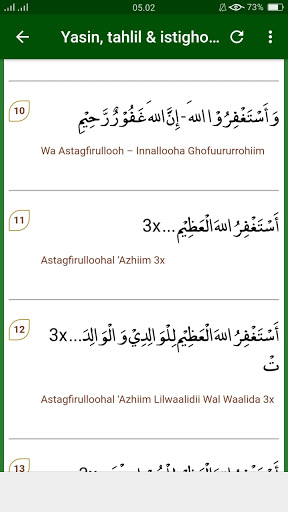 05.02
73%
Yasin, tahlil & istigho...
10
وَأَسْتَغْفِرُوْا اللهَ - إِنَّ اللهَ غَفُوْرٌ رَّحِيْمٌ
Wa Astagfirullooh – Innallooha Ghofuururrohiim
11
أَسْتَغْفِرُ اللهَ الْعَظِيْمِ...3x
Astagfirulloohal 'Azhiim 3x
12
أَسْتَغْفِرُ اللهَ الْعَظِيْمِ لِلْوَالِدِيْ وَ الْوَالِدَ...3x
تْ
Astagfirulloohal 'Azhiim Lilwaalidii Wal Waalida 3x
13